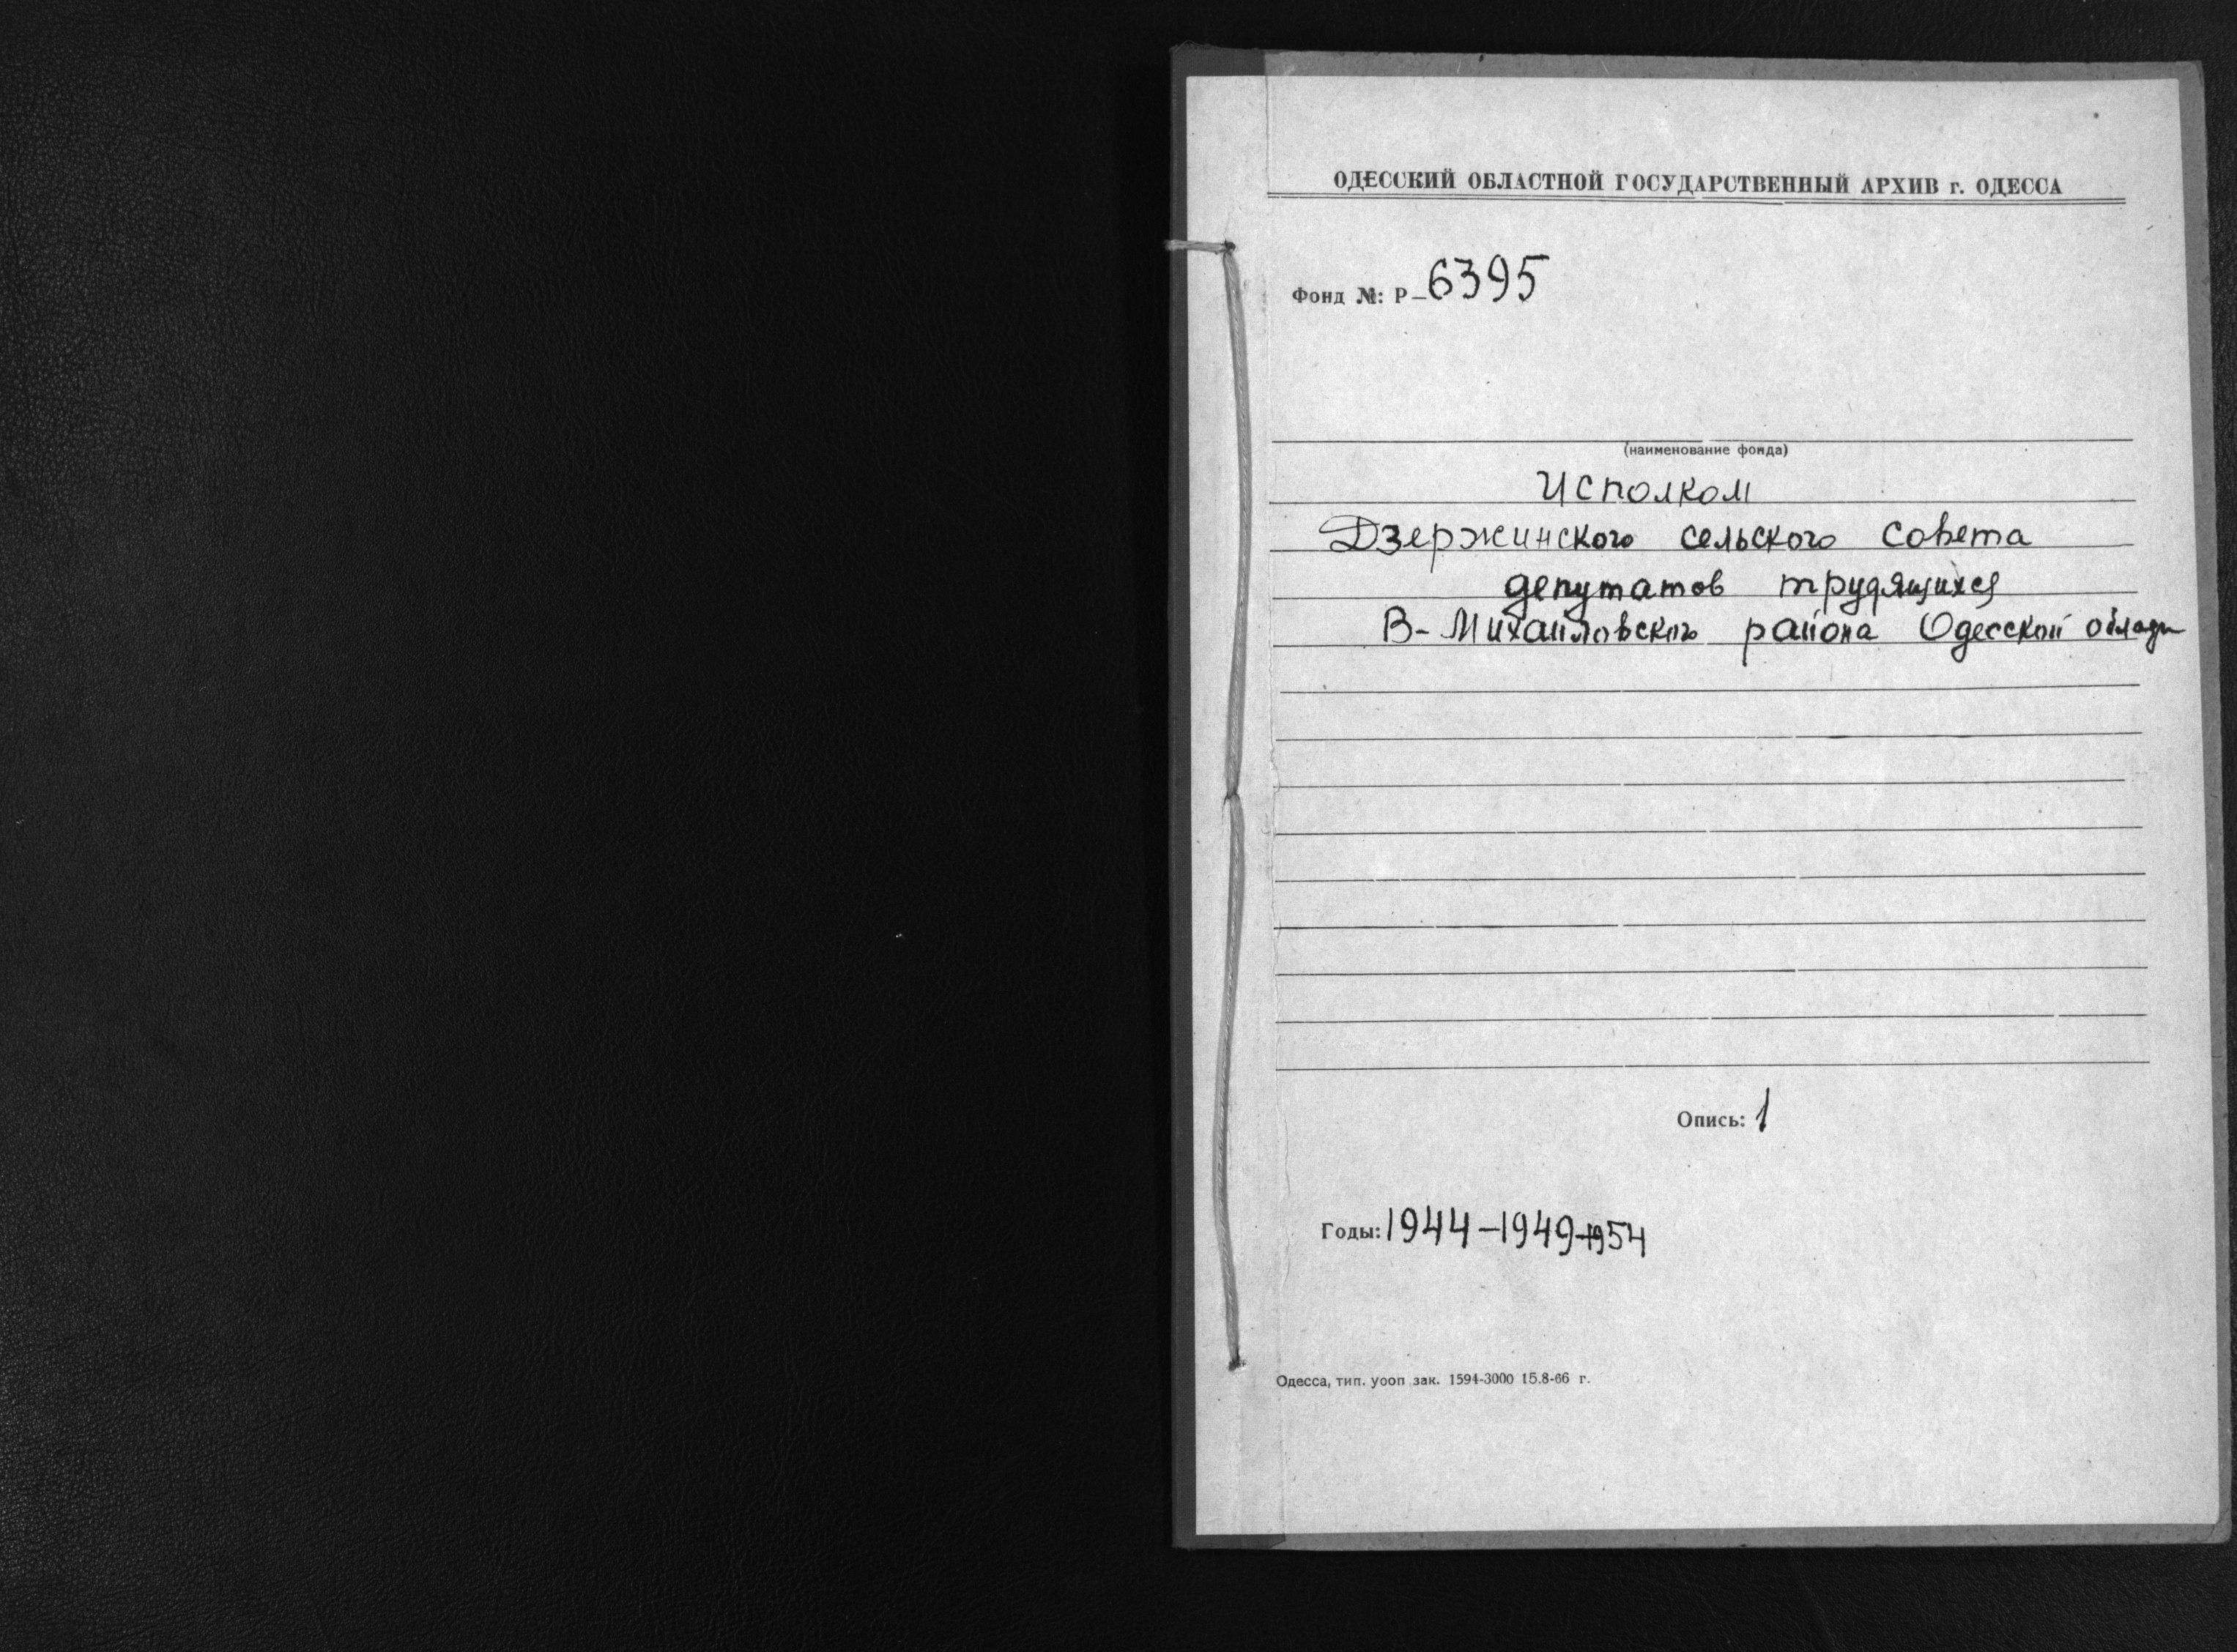 ОДЕССКИЙ ОБЛАСТНОЙ ГОСУДАРСТВЕННЫЙ АРХИВ г. ОДЕССА
Фонд №: Р-6395
(наименование фонда)
Исполком
Дзержинского сельского совета
депутатов трудящихся
В-Михайловского района Одесской
Опись: 1
Годы: 1944-1949-1954
Одесса, тип. уооп зак. 1594-3000 15.8-66 г.